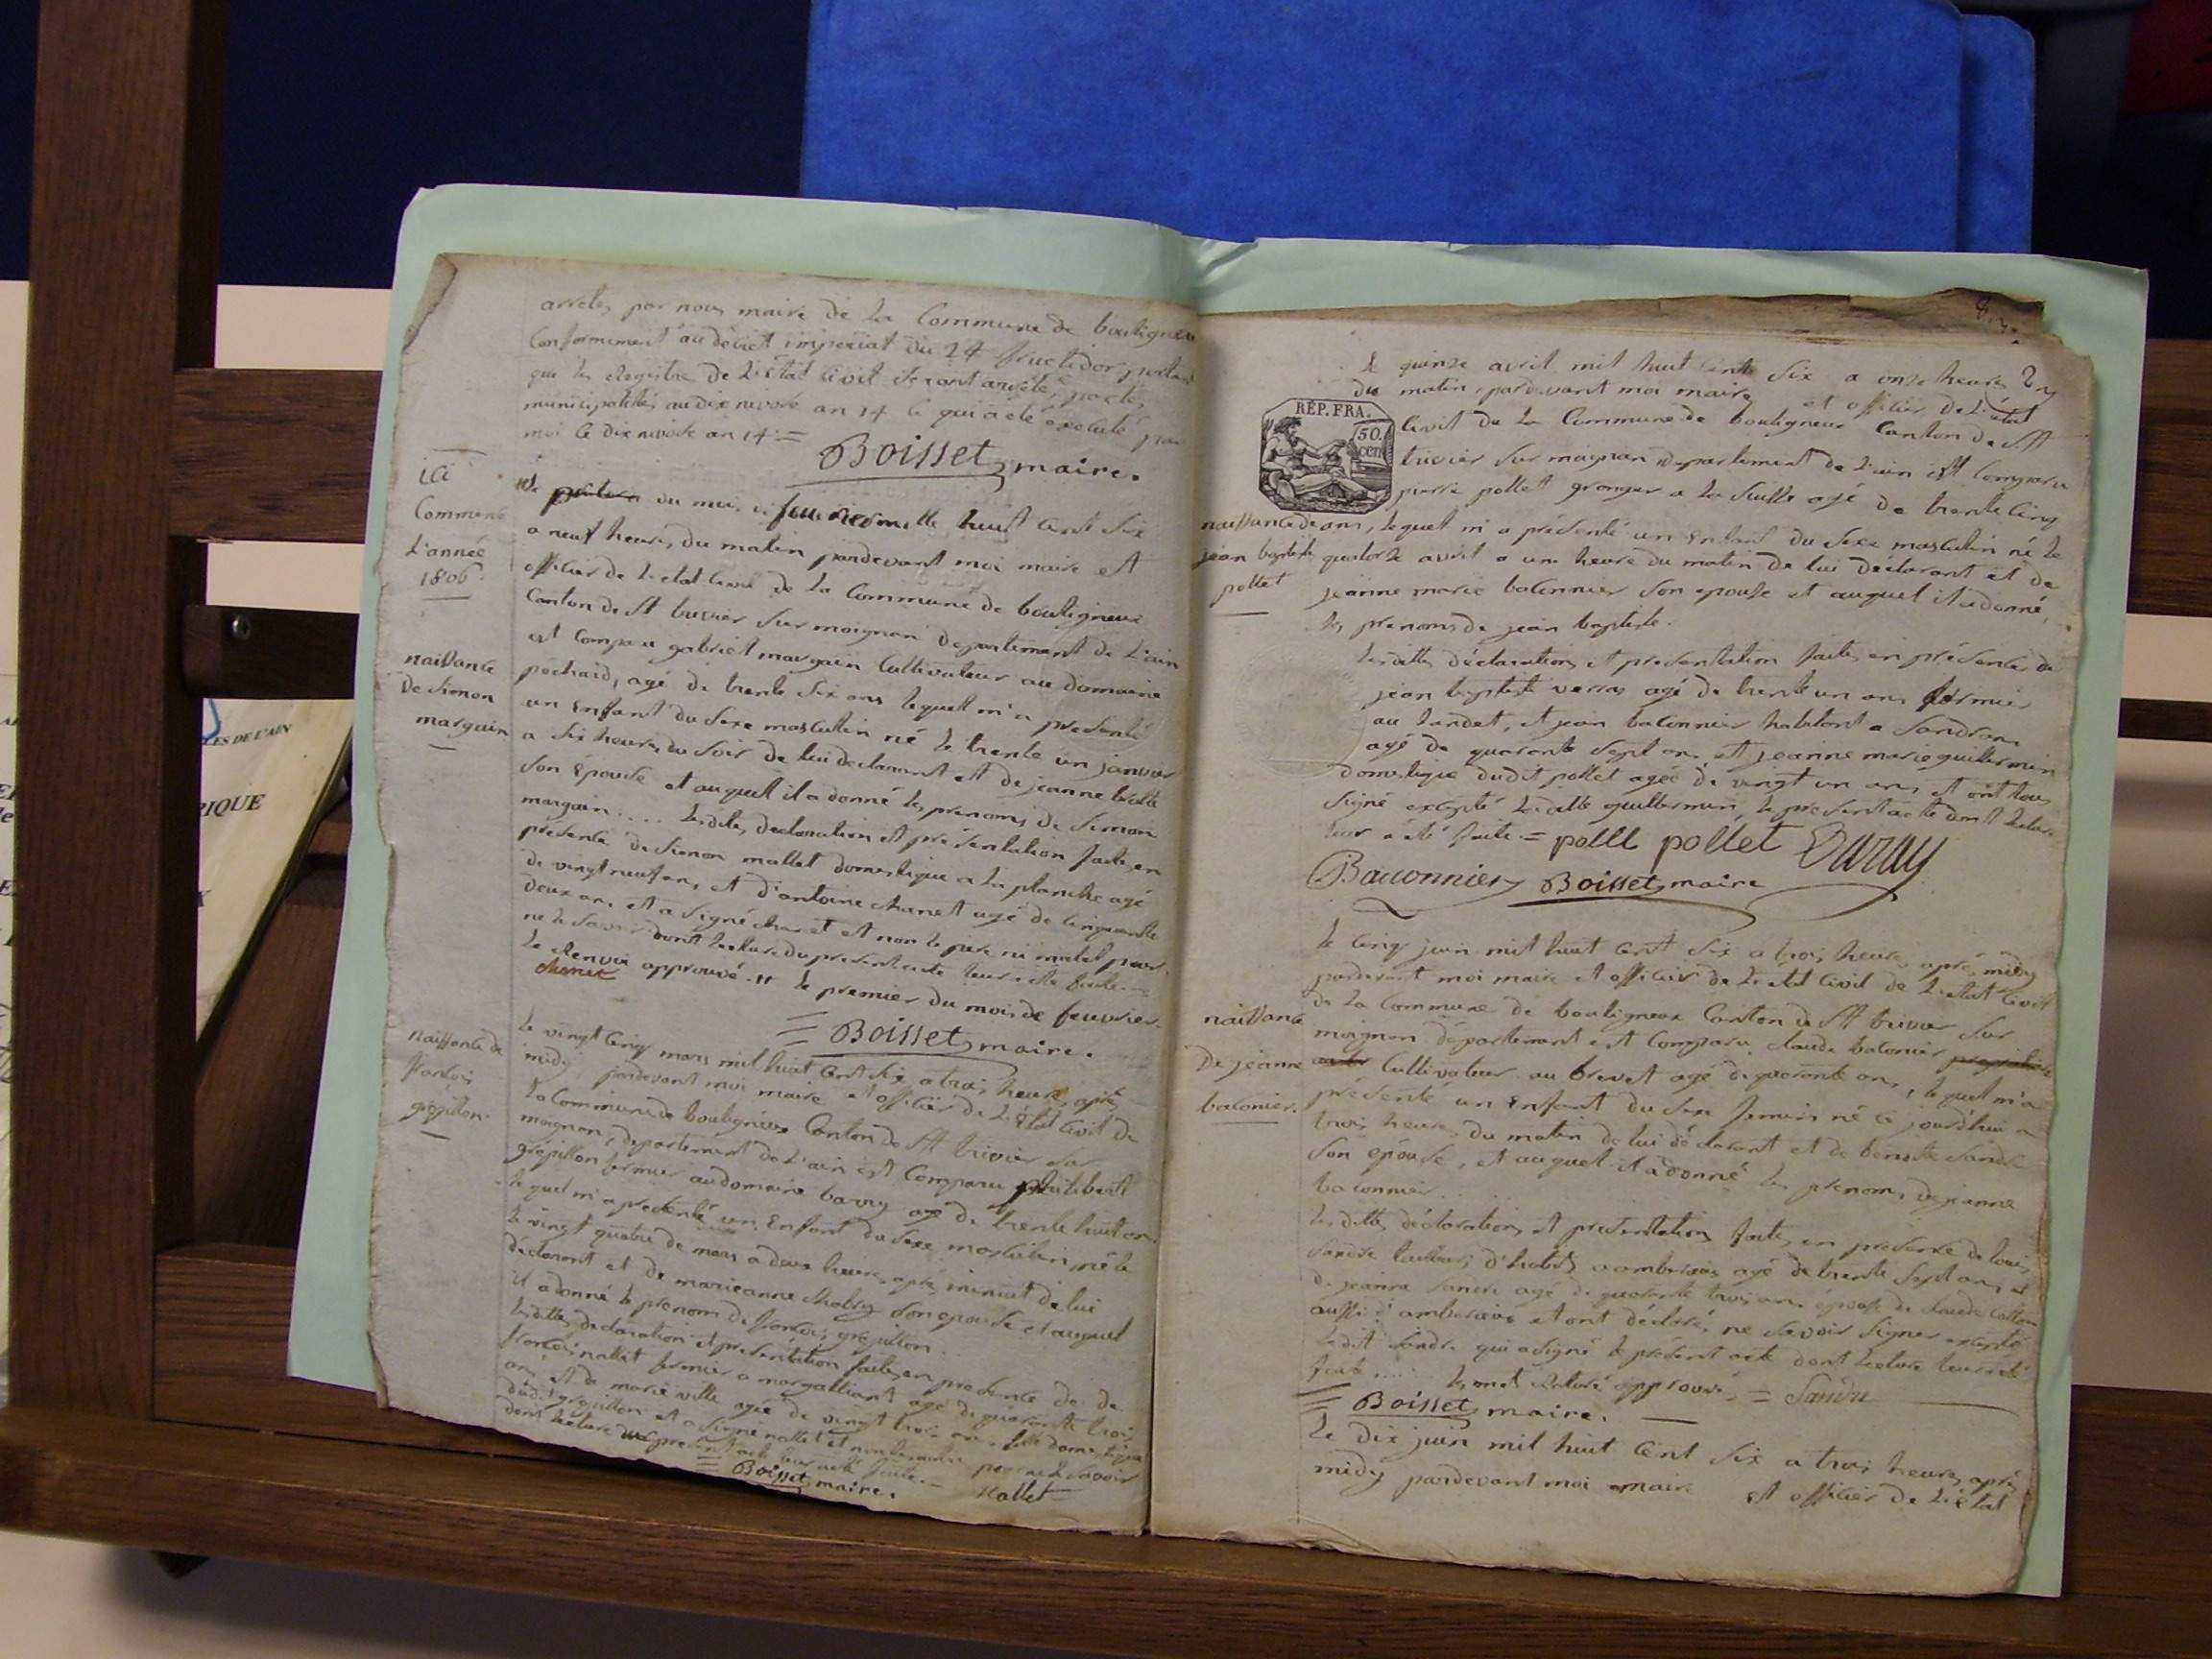 arretés par nous maire de la Commune de bouligneux
Conformément au décret impérial du 24 fructidor portant
que les Registres de L'état Civil seront arretés par les
municipalités au dix nivose an 14 ce qui a été exécuté par
moi le dix nivose an 14 =
Boisset maire.
ici
Commence
L'année
1806
Le du mois de feuvrier mille huit Cent Six
a neuf heures du matin pardevant moi maire et
officier de L'état Civil de La Commune de bouligneux
Canton de St trivier Sur moignan departement de L'ain
est Comparu gabriel margain Cultivateur au domaine
pochaid, agé de trente Six ans lequel m'a presenté
un Enfant du Sexe masculin né le trente un janvier
a Six heures du Soir de lui declarant et de jeanne
Son Epouse et auquel il a donné les prenoms de Simon
margain .... lesdites declaration et présentation faites en
présence de Simon mallet domestique a la planche agé
de vingt neuf ans et d'antoine chanet agé de Cinquante
deux ans et a signé chanet et non le pere ni mallet pour
ne le Savoir dont lecture du present acte leur a été faite.
Le Renvoi approuvé. le premier du mois de feuvrier.
chanet
= Boisset maire.
naissance
De Simon
margain
naissance de
françois
grépillon
Le vingt Cinq mars mil huit Cent Six a trois heures après
midy pardevant moi maire et officier de L'état Civil de
La Commune de bouligneux Canton de St trivier Sur
moignan, departement de L'ain est Comparu philibert
grépillon fermier au domaine barny agé de trente huit ans
lequel m'a presenté un Enfant du Sexe masculin, né le
le vingt quatre de mars a deux heures après minuit de lui
déclarant et de marieanne Son epouse et auquel
il a donné le prenom de françois grépillon.
lesdittes declaration et présentation faites en presence de de
françois nallet fermier a agé de quarante trois
ans et de marie ville agée de vingt trois ans domestique
dudit grépillon et a Signé nallet et non pour ne le Savoir
dont lecture du present acte leur a été faite. =
= Boisset maire. Nallet =
Le quinze avril mil huit Cent Six a onze heures
du matin, pardevant moi maire et officier de L'état
Civil de La Commune de bouligneux Canton de St
trivier Sur moignan departement de L'ain est Comparu
pierre pollet granger a La agé de trente Cinq
RÉP. FRA.
50.
cen
naissance de
jean baptiste
pollet
ans, lequel m'a présenté un Enfant du Sexe masculin né le
quatorze avril a une heure du matin de lui déclarant et de
jeanne marie baconnier Son epouse et auquel il a donné
les prenoms de jean baptiste.
lesdittes déclarations et presentation faites en présence de
jean baptiste agé de trente un ans fermier
au et jean baconnier habitant a Sandrans
agé de quarante Sept ans, et jeanne marie guillermin
domestique dudit pollet agée de vingt un ans et ont tous
Signé excepté laditte guillermin, le present acte dont lecture
leur a été faite = pollet
Baconnier Boisset maire
naissance
De jeanne
baconier.
Le Cinq juin mil huit Cent Six a trois heures après midy
pardevant moi maire et officier de L'état Civil de L'état Civil
de La Commune de bouligneux Canton de St trivier Sur
moignan département est Comparu claude baconier
Cultivateur au brevet agé de quarante ans, lequel m'a
présenté un Enfant du Sexe feminin né ce jourd'hui a
trois heures du matin de lui déclarant et de benoite Sandre
Son épouse, et auquel il a donné les prenoms de jeanne
baconnier. . .
lesdittes déclarations et presentation faites en présence de louis
Sandre tailleur d'habits a amberieux agé de trente Sept ans et
de jeanne Sandre agé de quarante trois ans épouse de claude
aussi d'amberieux et ont déclaré ne Savoir Signer excepté
ledit Sandre qui a Signé le présent acte dont lecture leur a été
faite .... les mots approuvés = Sandre
= Boisset maire.
Le dix juin mil huit Cent Six a trois heures après
midy pardevant moi maire et officier de L'état